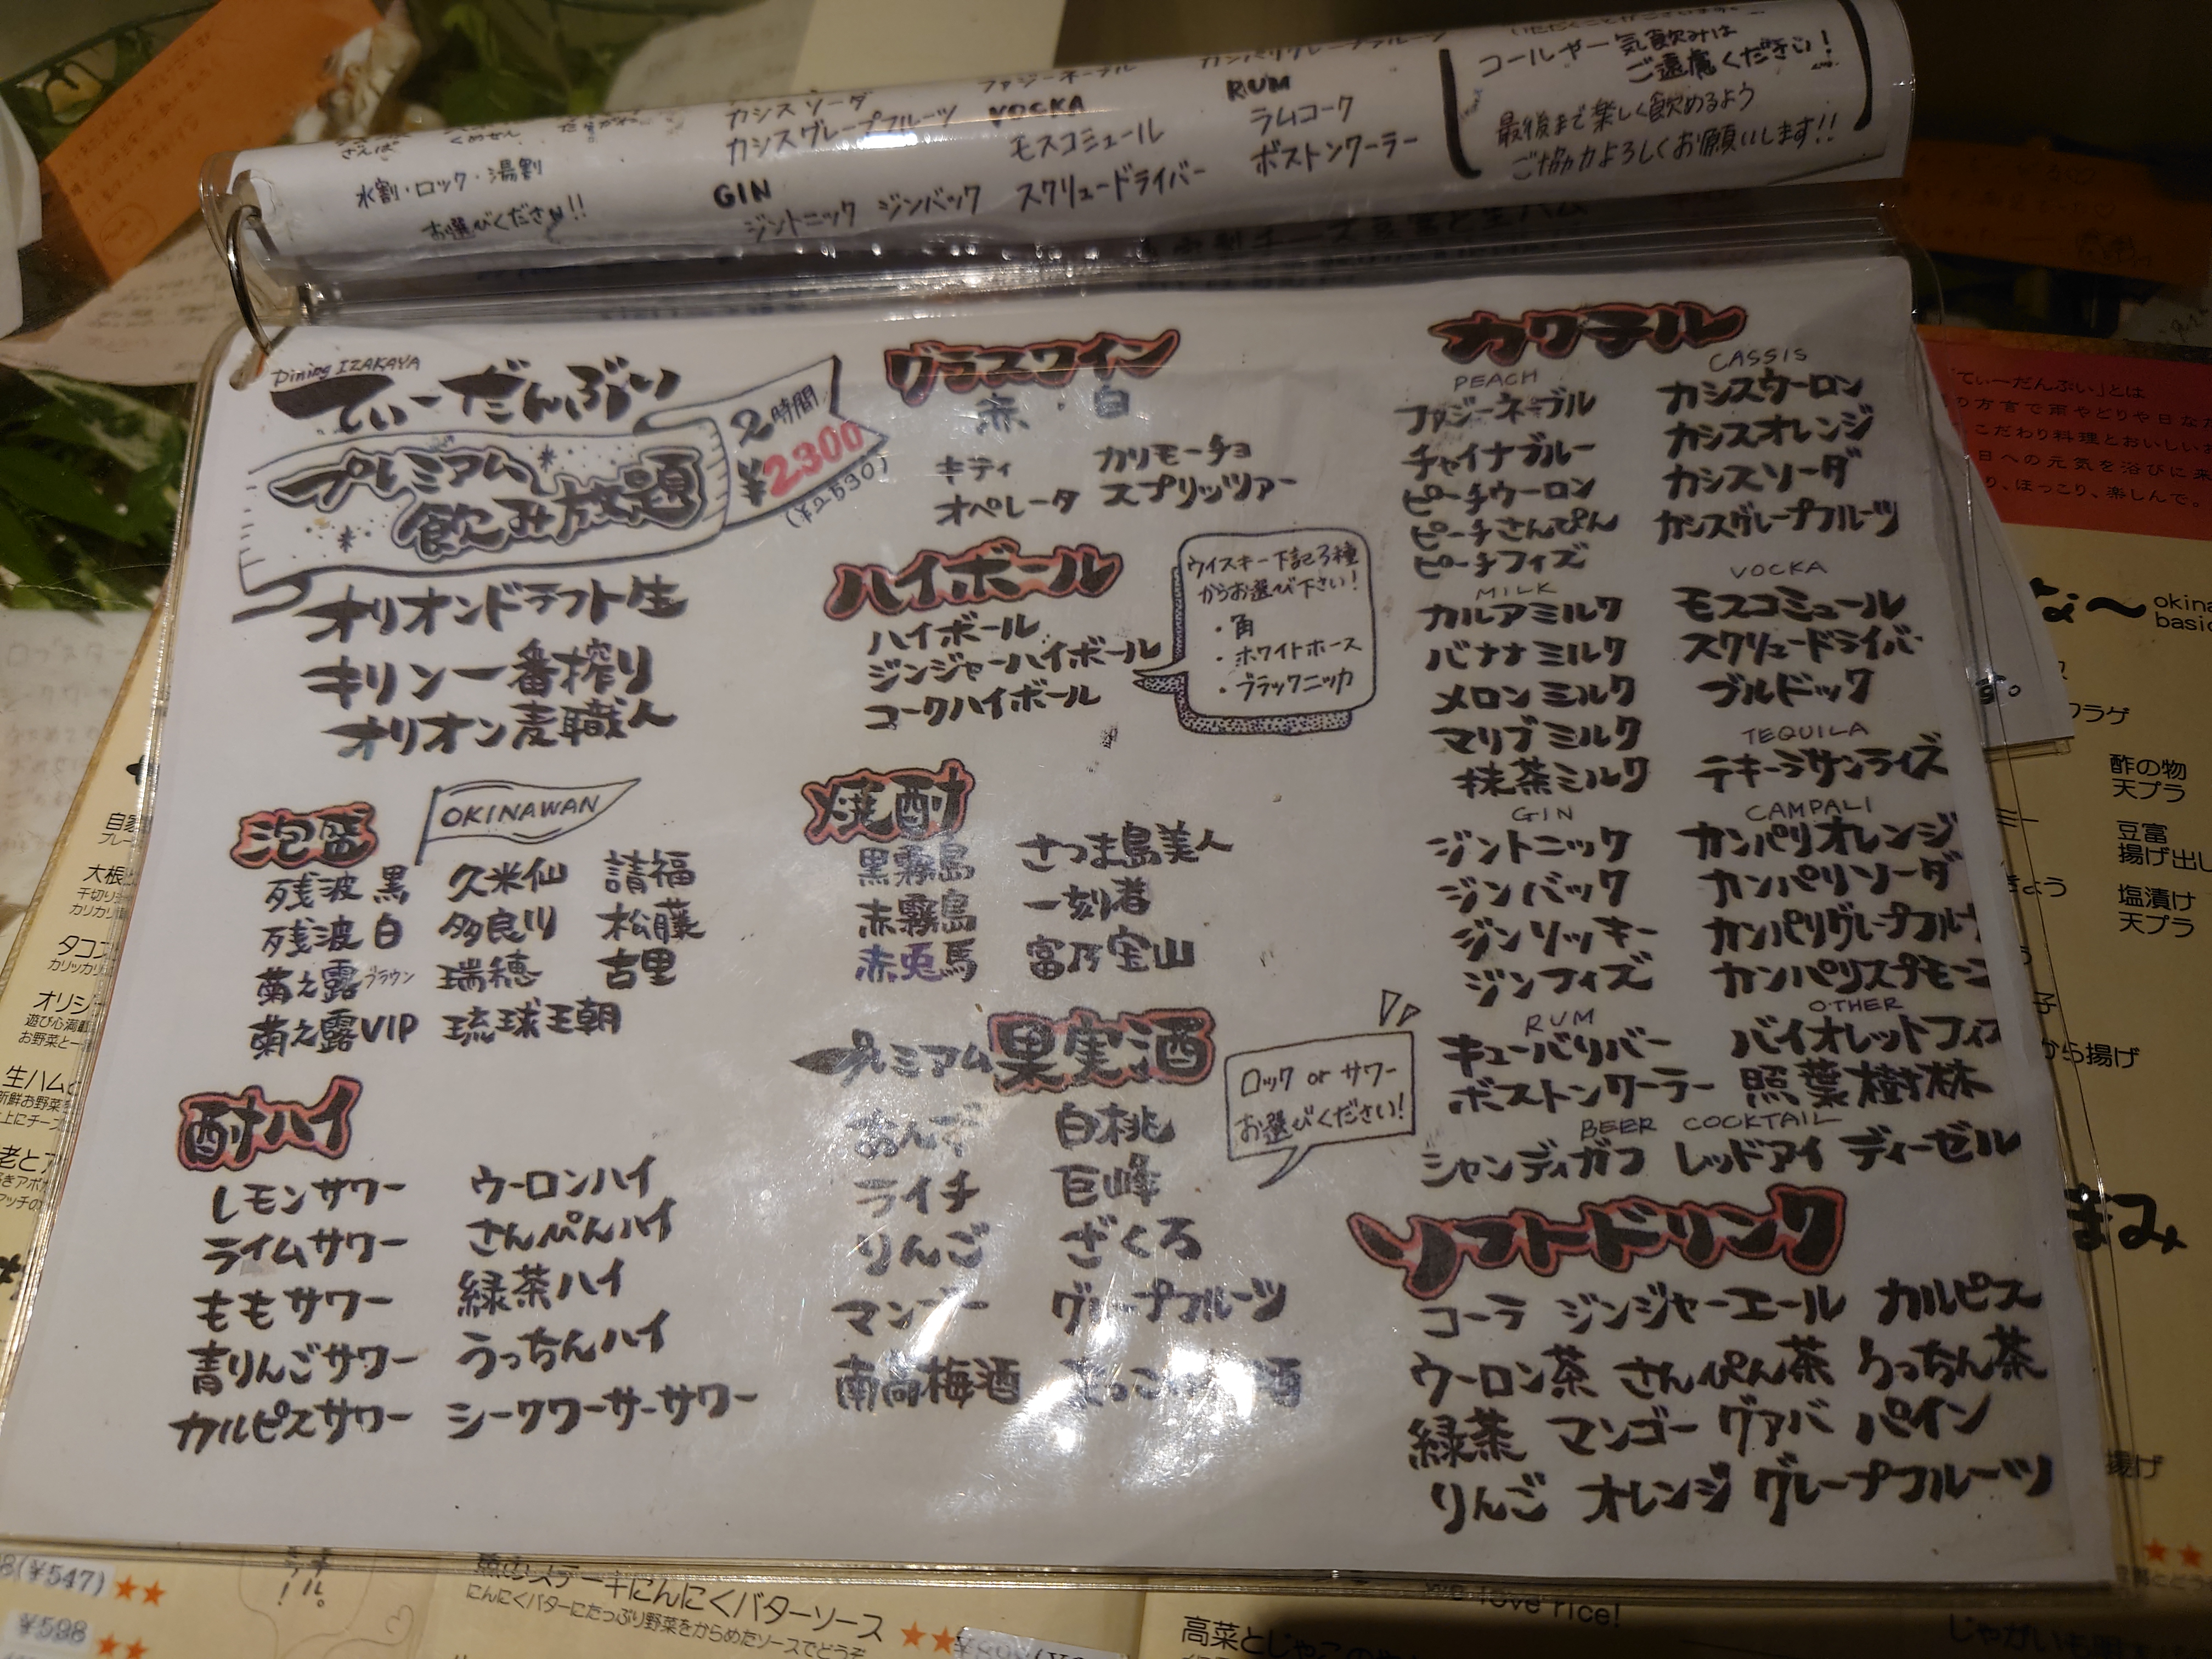 カシスソーダ
カシスグレープフルーツ
GIN
ジントニック ジンバック
ファジーネーブル
VOCKA
モスコミュール
スクリュードライバー
カンパリグレープフルーツ
RUM
ラムコーク
ボストンクーラー
水割・ロック・湯割
お選びください!!
コールや一気飲みは
ご遠慮ください!
最後まで楽しく飲めるよう
ご協力よろしくお願いします!!
Dining IZAKAYA
てぃーだんぶい
プレミアム
飲み放題
2時間
¥2300
(¥2530)
オリオンドラフト生
キリン一番搾り
オリオン麦職人
泡盛
OKINAWAN
残波 黒 久米仙 請福
残波 白 多良川 松藤
菊之露ブラウン 瑞穂 古里
菊之露VIP 琉球王朝
酎ハイ
レモンサワー ウーロンハイ
ライムサワー さんぴんハイ
ももサワー 緑茶ハイ
青りんごサワー うっちんハイ
カルピスサワー シークワーサーサワー
グラスワイン
赤・白
キティ カリモーチョ
オペレータ スプリッツァー
ハイボール
ハイボール
ジンジャーハイボール
コークハイボール
ウイスキー下記3種
からお選び下さい!
・角
・ホワイトホース
・ブラックニッカ
焼酎
黒霧島 さつま島美人
赤霧島 一刻者
赤兎馬 富乃宝山
プレミアム果実酒
ロック or サワー
お選びください!
あんず 白桃
ライチ 巨峰
りんご ざくろ
マンゴー グレープフルーツ
南高梅酒
カクテル
PEACH
ファジーネーブル
チャイナブルー
ピーチウーロン
ピーチさんぴん
ピーチフィズ
MILK
カルアミルク
バナナミルク
メロンミルク
マリブミルク
抹茶ミルク
GIN
ジントニック
ジンバック
ジンリッキー
ジンフィズ
RUM
キューバリバー
ボストンクーラー
CASSIS
カシスウーロン
カシスオレンジ
カシスソーダ
カシスグレープフルーツ
VOCKA
モスコミュール
スクリュードライバー
ブルドック
TEQUILA
テキーラサンライズ
CAMPALI
カンパリオレンジ
カンパリソーダ
カンパリグレープフルーツ
カンパリスプモーニ
OTHER
バイオレットフィズ
照葉樹林
BEER COCKTAIL
シャンディガフ レッドアイ ディーゼル
ソフトドリンク
コーラ ジンジャーエール カルピス
ウーロン茶 さんぴん茶 うっちん茶
緑茶 マンゴー グァバ パイン
りんご オレンジ グレープフルーツ
「てぃーだんぶい」とは
酢の物
天プラ
豆富
塩漬け
天プラ
から揚げ
(¥547)
¥598
にんにくバターソース
にんにくバターにたっぷり野菜をからめたソースでどうぞ
we love rice!